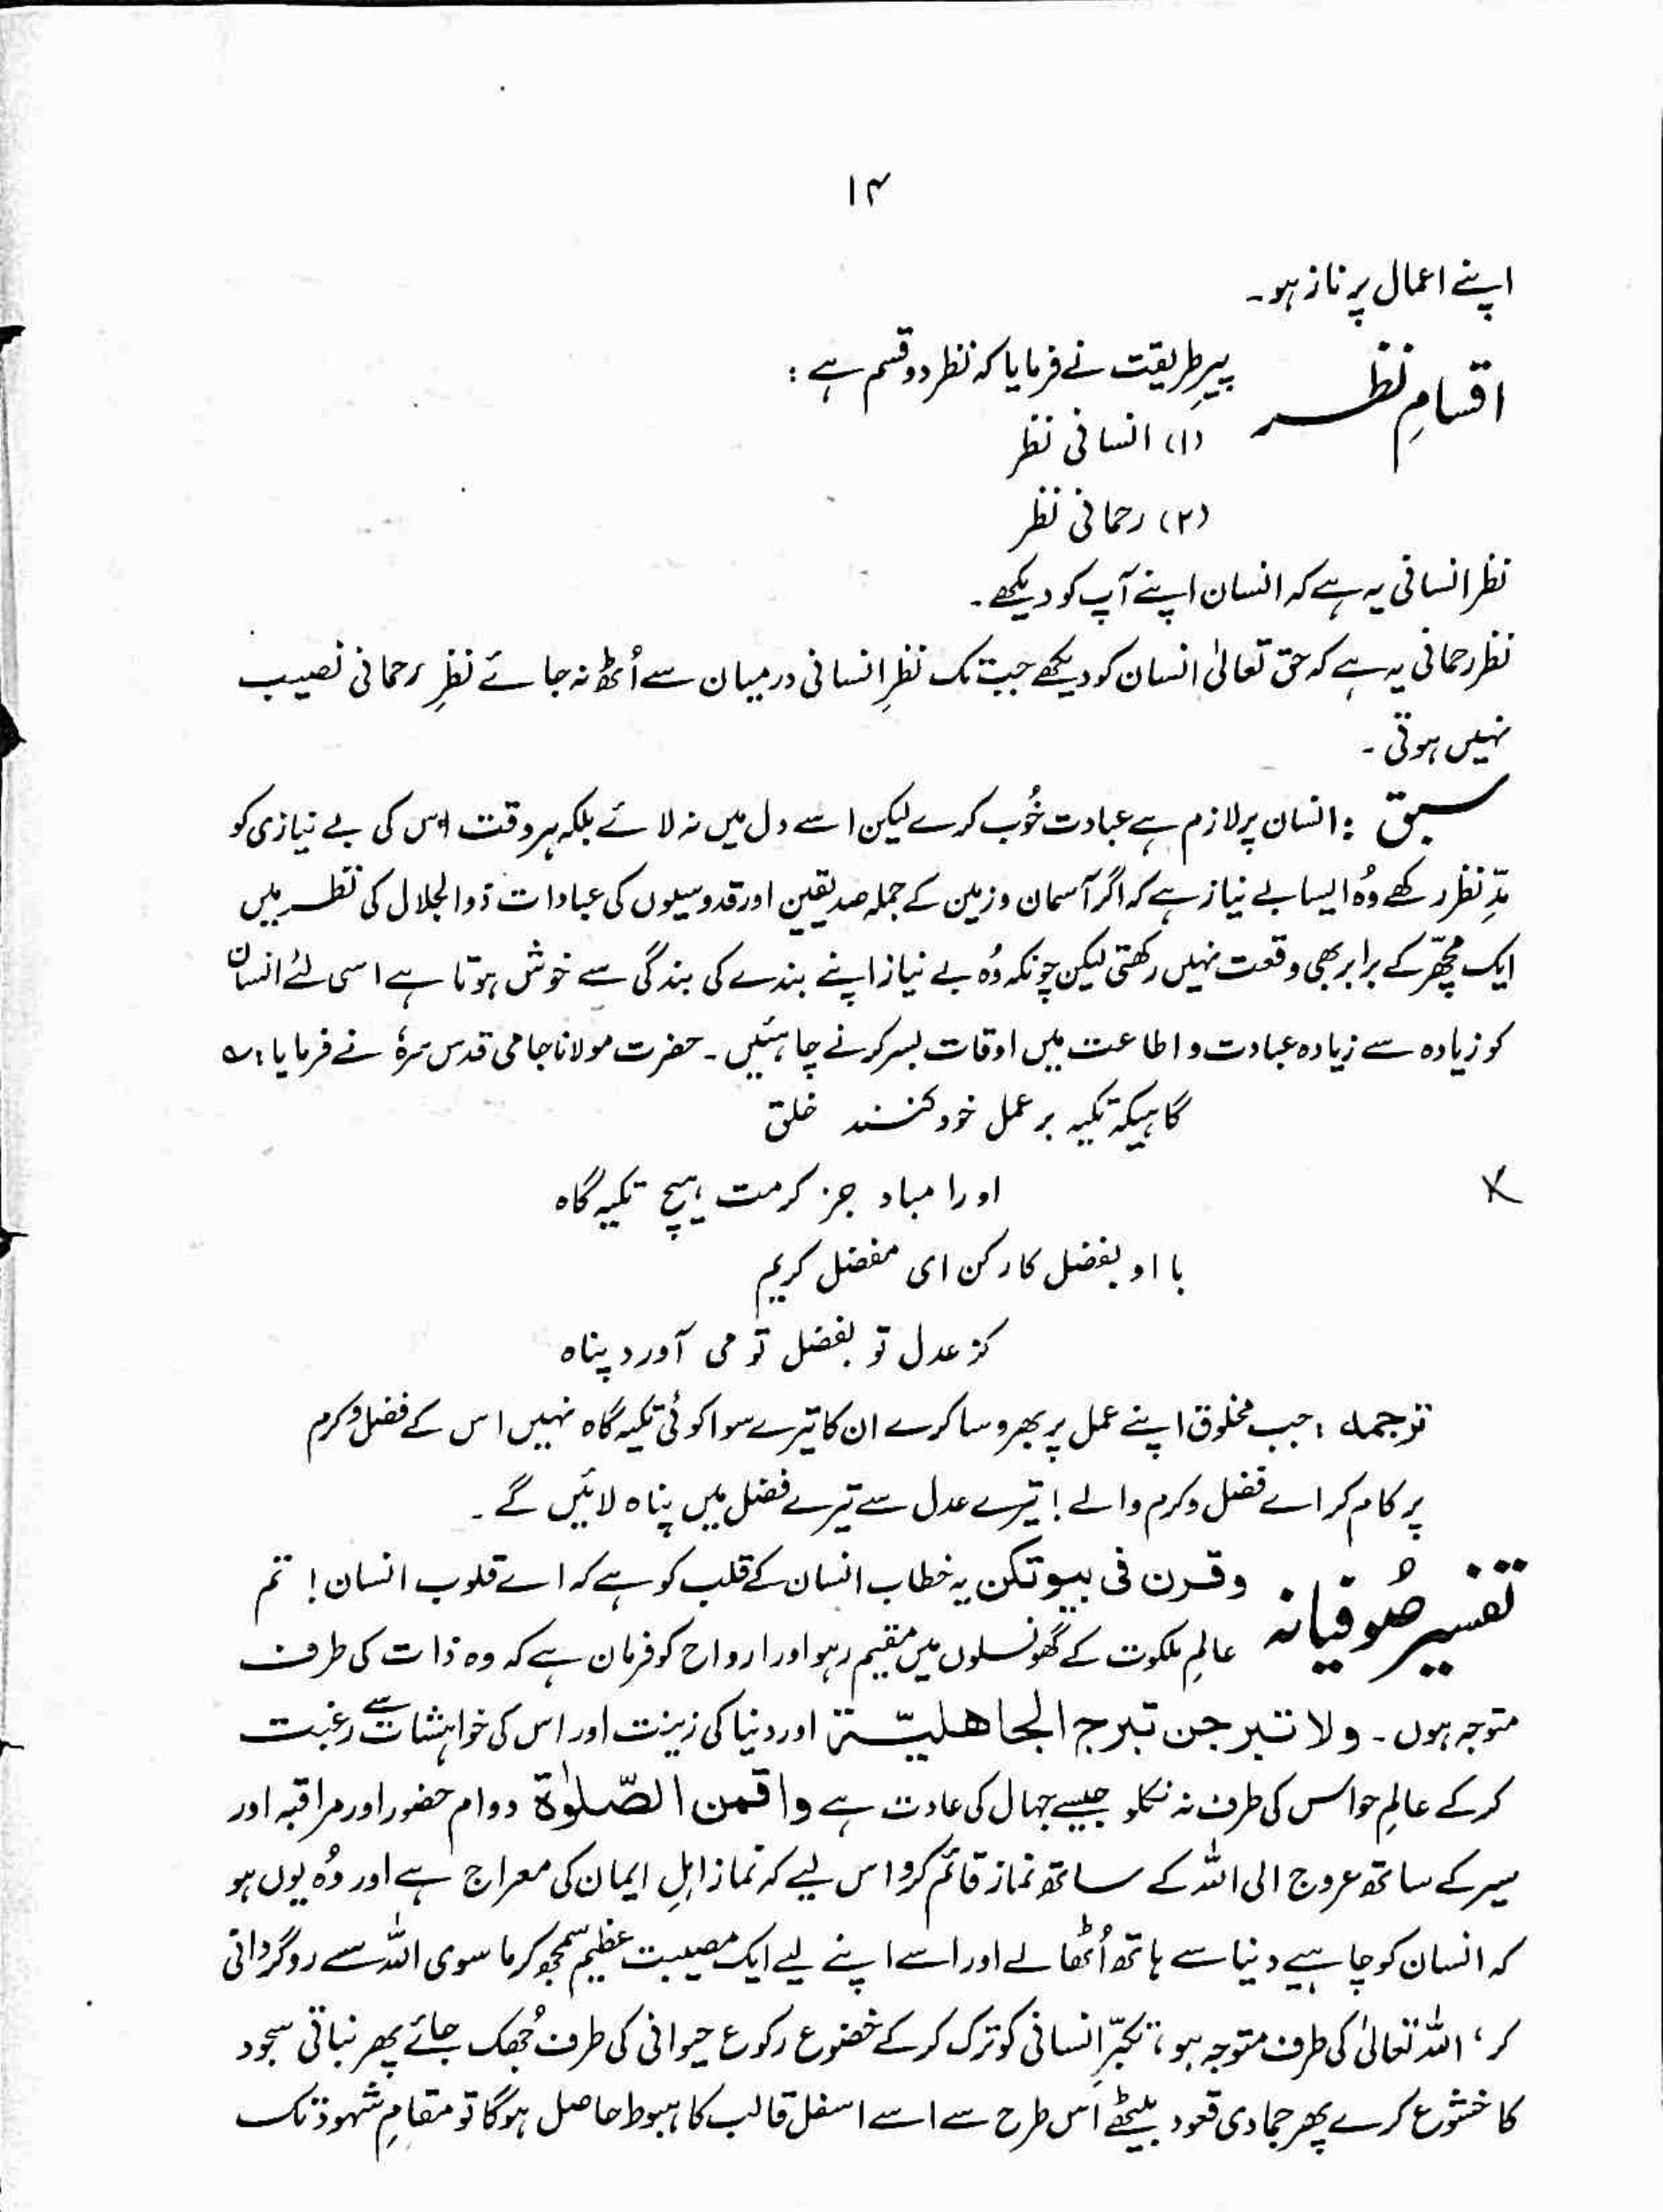 ۱۴
اپنے اعمال پر ناز ہو۔
اقسامِ نظر پیرِ طریقت نے فرمایا کہ نظر دو قسم ہے :
(۱) انسانی نظر
(۲) رحمانی نظر
نظر انسانی یہ ہے کہ انسان اپنے آپ کو دیکھے۔
نظر رحمانی یہ ہے کہ حق تعالیٰ انسان کو دیکھے جب تک نظرِ انسانی درمیان سے اُٹھ نہ جائے نظرِ رحمانی نصیب
نہیں ہوتی۔
سبق : انسان پر لازم ہے عبادت خُوب کرے لیکن اسے دل میں نہ لائے بلکہ ہر وقت اس کی بے نیازی کو
مدِّ نظر رکھے وُہ ایسا بے نیاز ہے کہ اگر آسمان و زمین کے جملہ صدیقین اور قدوسیوں کی عبادات ذوالجلال کی نظر میں
ایک مچھّر کے برابر بھی وقعت نہیں رکھتی لیکن چونکہ وُہ بے نیاز اپنے بندے کی بندگی سے خوش ہوتا ہے اسی لئے انسان
کو زیادہ سے زیادہ عبادت و اطاعت میں اوقات بسر کرنے چاہئیں۔ حضرت مولانا جامی قدس سرہٗ نے فرمایا : ؎
گاہیکہ تکیہ بر عمل خود کنند خلق
او را مباد جز کرمت ہیچ تکیہ گاہ
با او بفضل کار کن ای مفضل کریم
کز عدل تو بفضل تو می آورد پناہ
ترجمہ : جب مخلوق اپنے عمل پر بھروسا کرے ان کا تیرے سوا کوئی تکیہ گاہ نہیں اس کے فضل و کرم
پر کام کر اے فضل و کرم والے ! تیرے عدل سے تیرے فضل میں پناہ لائیں گے۔
تفسیر صُوفیانہ وقرن فی بیوتکن یہ خطاب انسان کے قلب کو ہے کہ اے قلوب انسان ! تم
عالمِ ملکوت کے گھونسلوں میں مقیم رہو اور ارواح کو فرمان ہے کہ وہ ذات کی طرف
متوجہ ہوں۔ ولا تبرجن تبرج الجاھلیّۃ اور دنیا کی زینت اور اس کی خواہشات سے رغبت
کر کے عالمِ حواس کی طرف نہ نکلو جیسے جہال کی عادت ہے واقمن الصّلوٰۃ دوام حضور اور مراقبہ اور
سیر کے ساتھ عروج الی اللہ کے ساتھ نماز قائم کرو اس لیے کہ نماز اہلِ ایمان کی معراج ہے اور وُہ یوں ہو
کہ انسان کو چاہیے دنیا سے ہاتھ اُٹھا لے اور اسے اپنے لیے ایک مصیبت عظیم سمجھ کر ما سوی اللہ سے روگردانی
کر، اللہ تعالیٰ کی طرف متوجہ ہو، تکبّرِ انسانی کو ترک کر کے خضوع رکوع حیوانی کی طرف جُھک جائے پھر نباتی سجود
کا خشوع کرے پھر جمادی قعود بیٹھے اس طرح سے اسے اسفل قالب کا ہبوط حاصل ہوگا تو مقامِ شہود تک